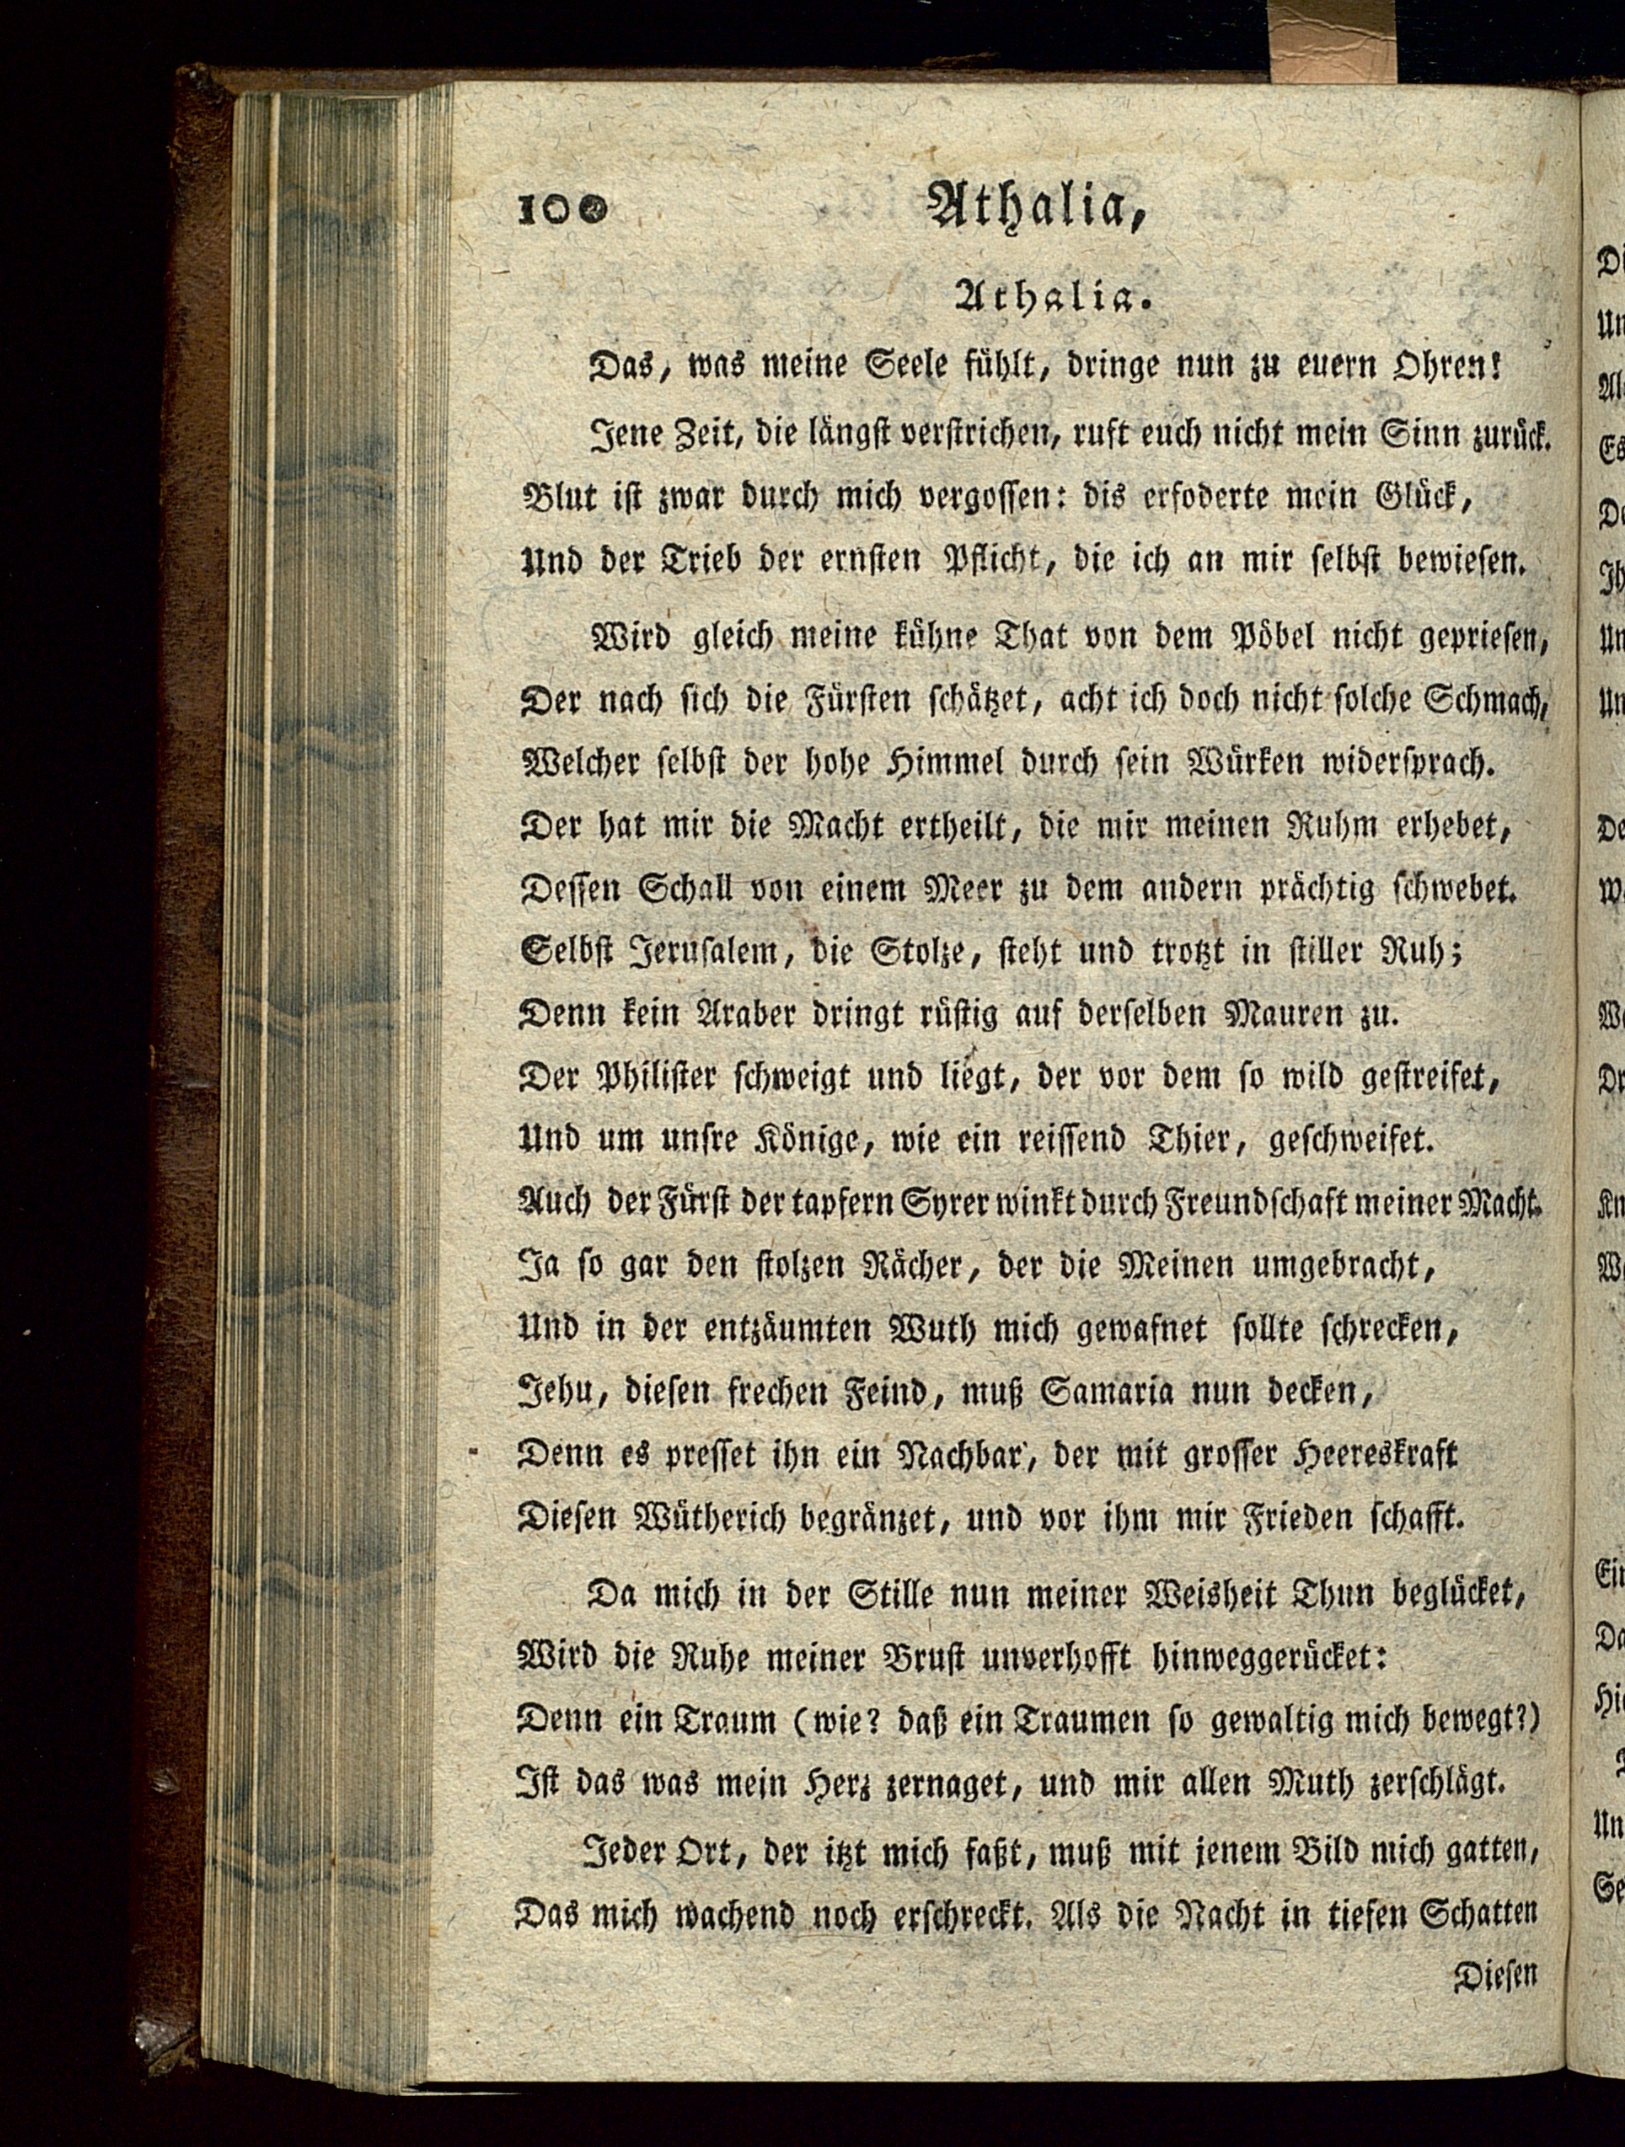 100
Athalia,
Athalia.
Das, was meine Seele fühlt, dringe nun zu euern Ohren!
Jene Zeit, die längst verstrichen, ruft euch nicht mein Sinn zurück.
Blut ist zwar durch mich vergossen: dis erfoderte mein Glück,
Und der Trieb der ernsten Pflicht, die ich an mir selbst bewiesen.
Wird gleich meine kühne That von dem Pöbel nicht gepriesen,
Der nach sich die Fürsten schätzet, acht ich doch nicht solche Schmach,
Welcher selbst der hohe Himmel durch sein Würken widersprach.
Der hat mir die Macht ertheilt, die mir meinen Ruhm erhebet,
Dessen Schall von einem Meer zu dem andern prächtig schwebet.
Selbst Jerusalem, die Stolze, steht und trotzt in stiller Ruh;
Denn kein Araber dringt rüstig auf derselben Mauren zu.
Der Philister schweigt und liegt, der vor dem so wild gestreifet,
Und um unsre Könige, wie ein reissend Thier, geschweifet.
Auch der Fürst der tapfern Syrer winkt durch Freundschaft meiner Macht.
Ja so gar den stolzen Rächer, der die Meinen umgebracht,
Und in der entzäumten Wuth mich gewafnet sollte schrecken,
Jehu, diesen frechen Feind, muß Samaria nun decken,
Denn es presset ihn ein Nachbar, der mit grosser Heereskraft
Diesen Wütherich begränzet, und vor ihm mir Frieden schafft.
Da mich in der Stille nun meiner Weisheit Thun beglücket,
Wird die Ruhe meiner Brust unverhofft hinweggerücket:
Denn ein Traum (wie? daß ein Traumen so gewaltig mich bewegt?)
Ist das was mein Herz zernaget, und mir allen Muth zerschlägt.
Jeder Ort, der itzt mich faßt, muß mit jenem Bild mich gatten,
Das mich wachend noch erschreckt. Als die Nacht in tiefen Schatten
Diesen